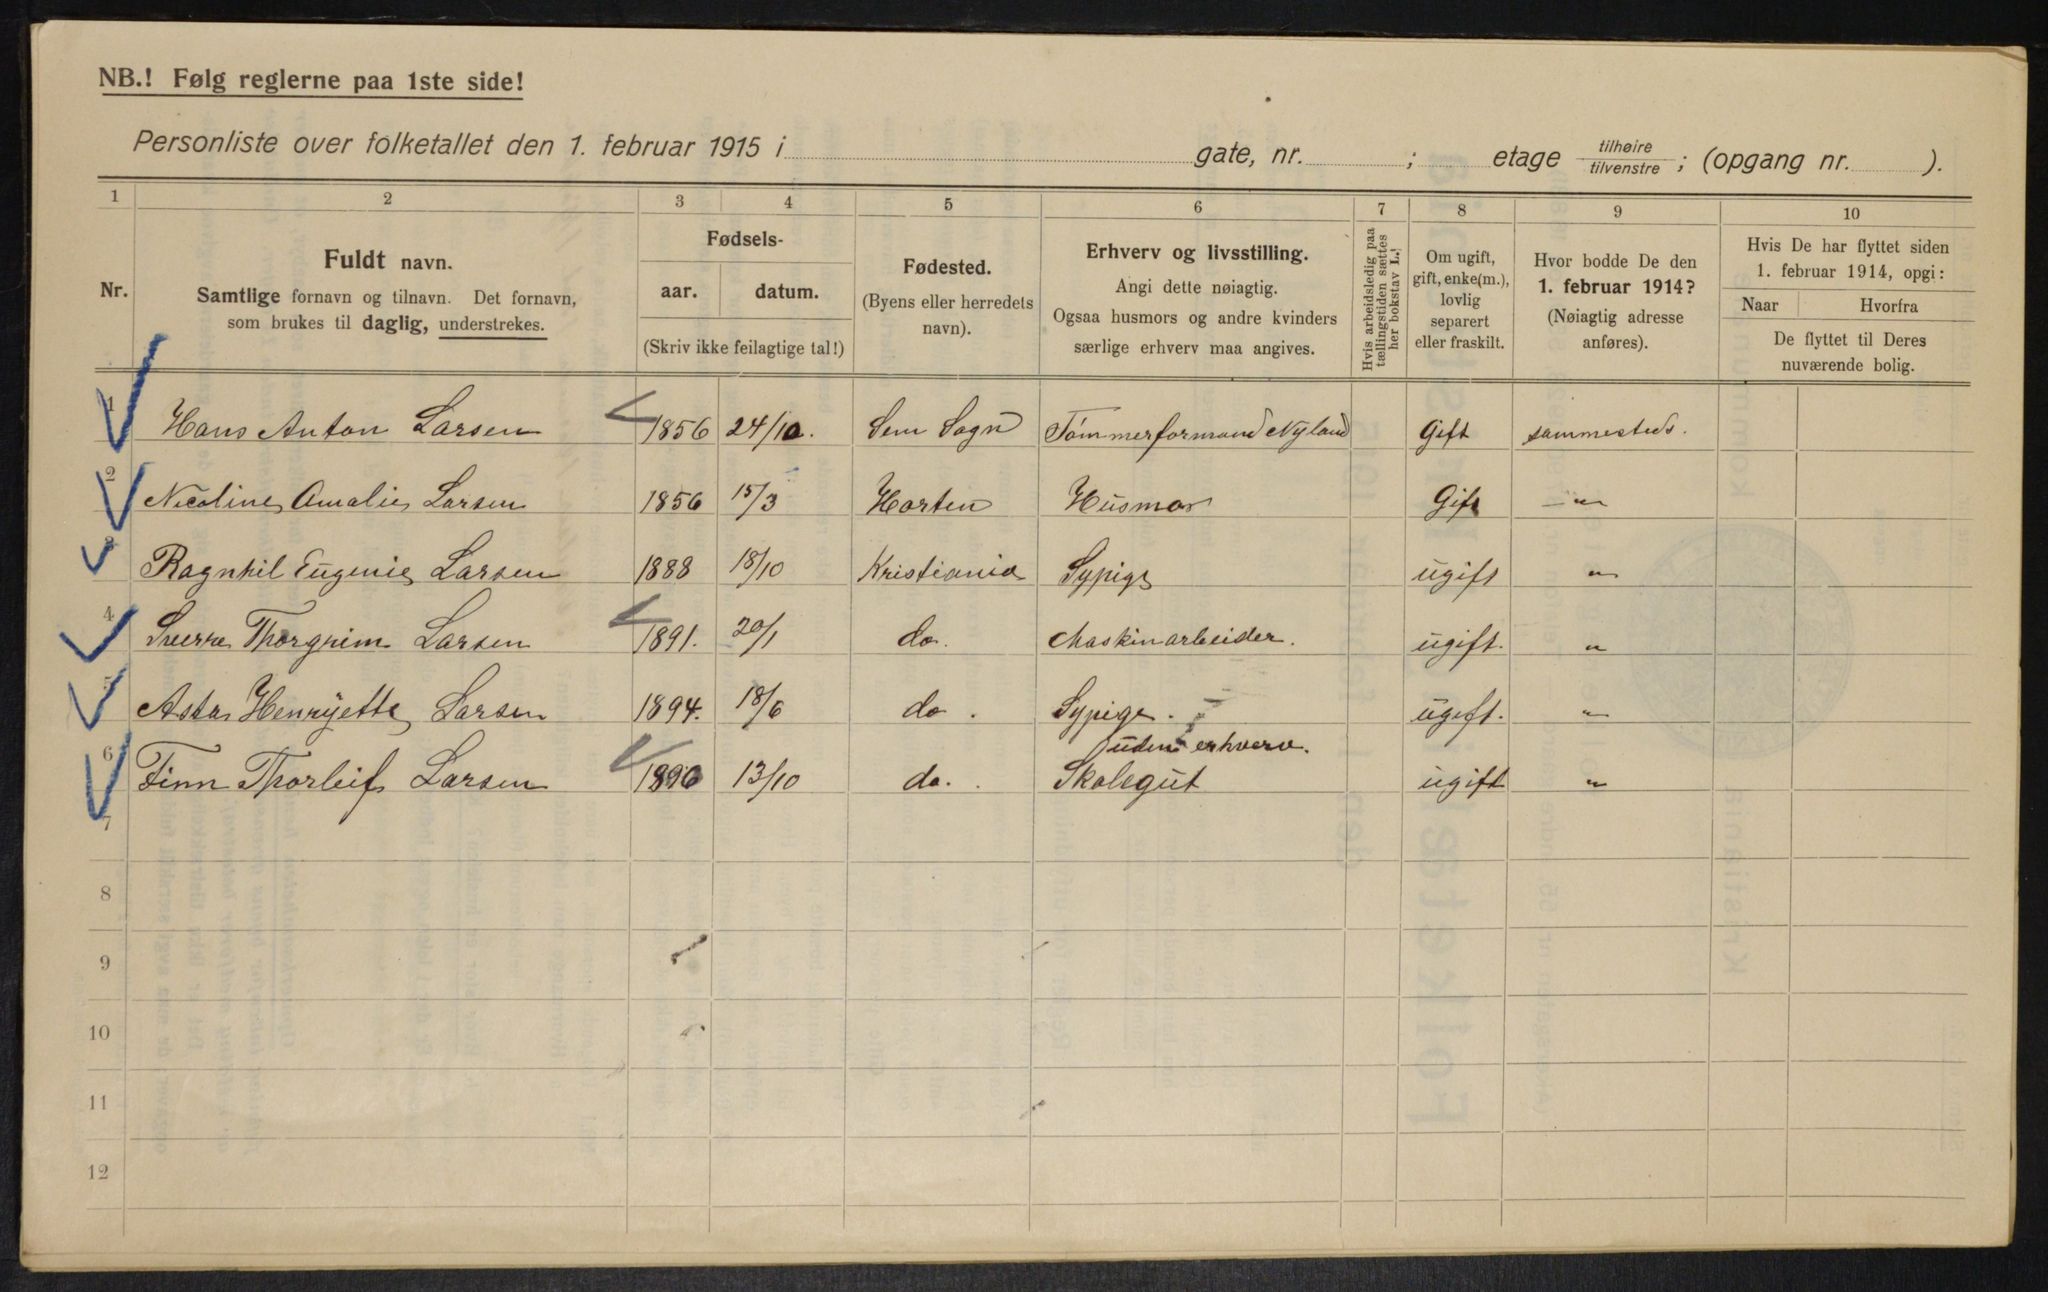 NB.! Følg reglerne paa 1ste side!
Personliste over folketallet den 1. februar 1915 i gate, nr. ; etage tilhøire tilvenstre ; (opgang nr. ).
1 2 3 4 5 6 7 8 9 10
Nr.
Fuldt navn.
Samtlige fornavn og tilnavn. Det fornavn,
som brukes til daglig, understrekes.
Fødsels-
aar. datum.
(Skriv ikke feilagtige tal!)
Fødested.
(Byens eller herredets
navn).
Erhverv og livsstilling.
Angi dette nøiagtig.
Ogsaa husmors og andre kvinders
særlige erhverv maa angives.
Hvis arbeidsledig paa
tællingstiden sættes
her bokstav L.
Om ugift,
gift, enke(m.),
lovlig
separert
eller fraskilt.
Hvor bodde De den
1. februar 1914?
(Nøiagtig adresse
anføres).
Hvis De har flyttet siden
1. februar 1914, opgi:
Naar Hvorfra
De flyttet til Deres
nuværende bolig.
1 Hans Anton Larsen 1856 24/10. Sem Sogn Tömmerformand Nyland Gift sammesteds.
2 Nicoline Amalie Larsen 1856 15/3 Horten Husmor Gift — " —
3 Ragnhil Eugenie Larsen 1888 18/10 Kristiania Sypige ugift "
4 Sverre Thorgrim Larsen 1891. 20/1 do. Maskinarbeider. ugift. "
5 Asta Henryette Larsen 1894. 18/6 do. Sypige. ugift. "
uden erhverv.
6 Finn Thorleif Larsen 1896 13/10 do. Skolegut ugift "
7
8
9
10
11
12